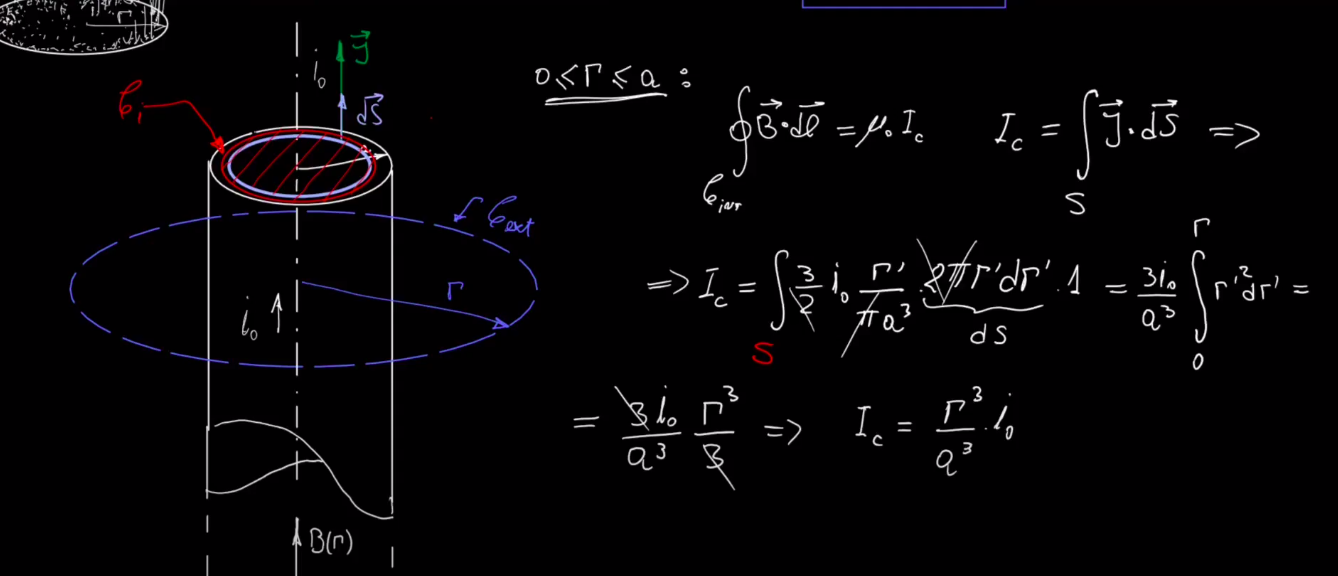 r
i₀
J⃗
dS⃗
C_i
C_ext
r
i₀
B(r)
0 ≤ r ≤ a :
∮_{C_int} B⃗·dl⃗ = μ₀ I_c    I_c = ∫_S J⃗·dS⃗ =>
=> I_c = ∫_S 3/2 i₀ r'/(πa³) · 2πr'dr' · 1 = 3i₀/a³ ∫₀^r r'² dr' =
dS
= 3i₀/a³ r³/3 => I_c = r³/a³ · i₀